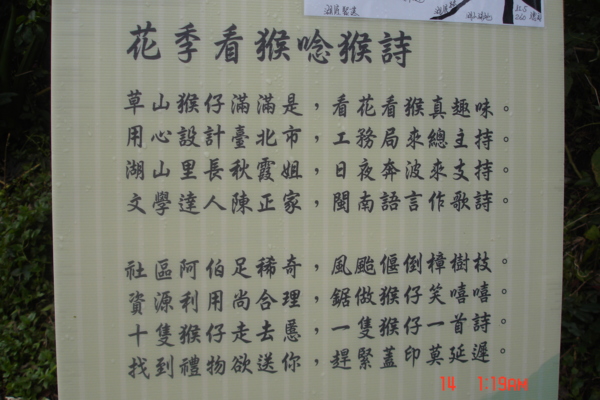 花季看猴唸猴詩
草山猴仔滿滿是，看花看猴真趣味。
用心設計臺北市，工務局來總主持。
湖山里長秋霞姐，日夜奔波來支持。
文學達人陳正家，閩南語言作歌詩。
社區阿伯足稀奇，風颱偃倒樟樹枝。
資源利用尚合理，鋸做猴仔笑嘻嘻。
十隻猴仔走去，一隻猴仔一首詩。
找到禮物欲送你，趕緊蓋印莫延遲。
14 1:19AM